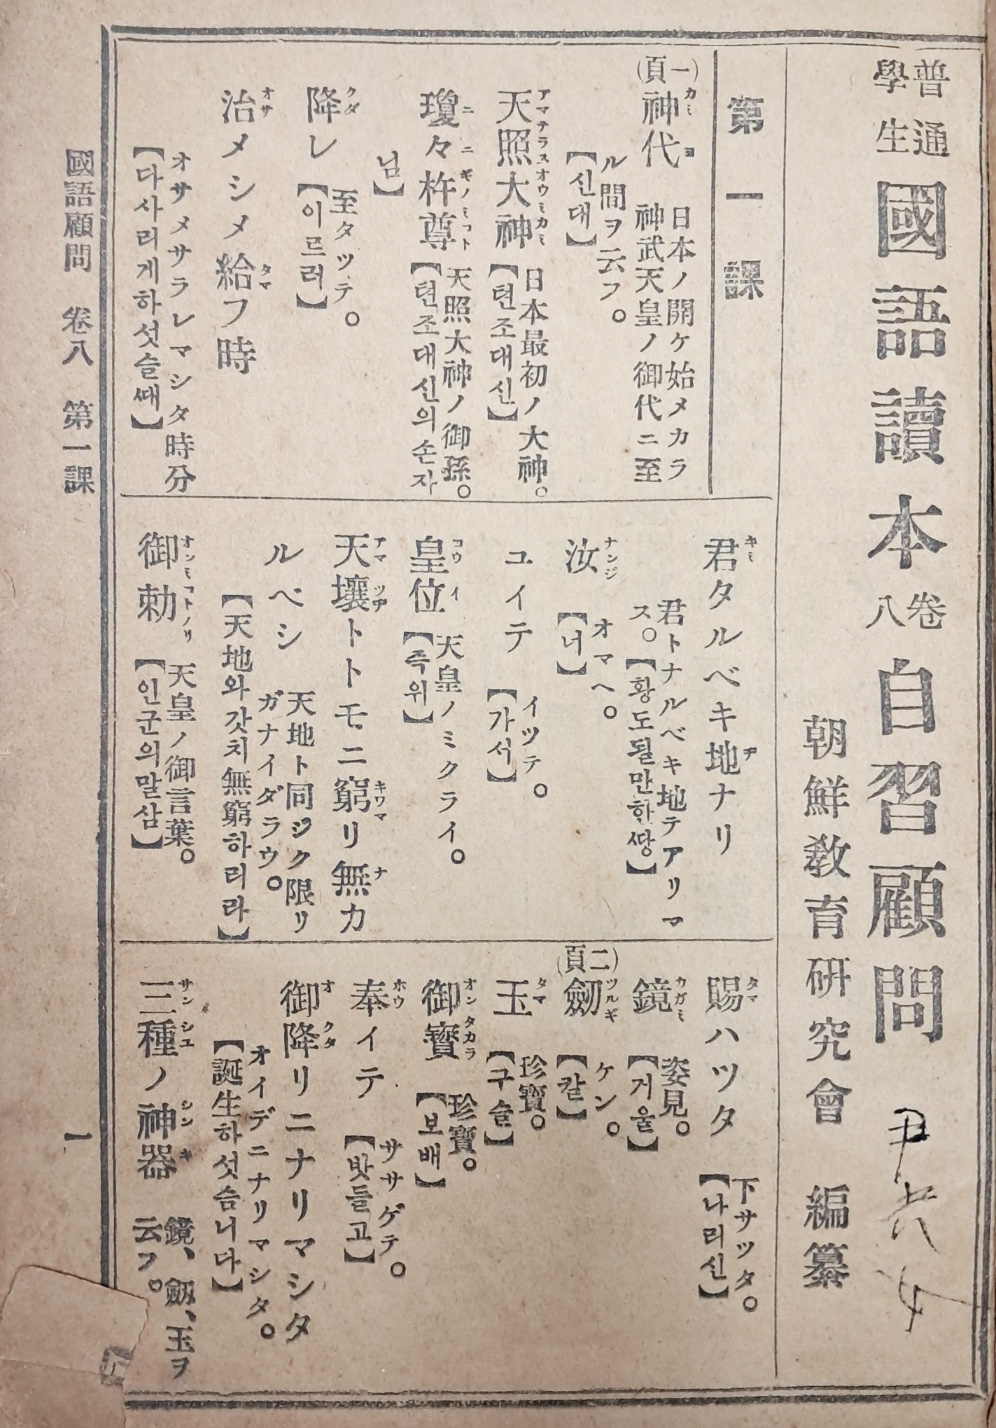 普通學生 國語讀本 卷八 自習顧問
朝鮮教育研究會 編纂
第一課
(一頁)
神代 カミヨ
日本ノ開ケ始メカラ
神武天皇ノ御代ニ至
ル間ヲ云フ。
【신대】
天照大神 アマテラスオウミカミ
日本最初ノ大神。
【텬조대신】
瓊々杵尊 ニニギノミコト
天照大神ノ御孫。
【텬조대신의손자
님】
降レ クダ
至タツテ。
【이르러】
治メシメ給フ時 オサ タマ
オサメサラレマシタ時分
【다사리게하섯슬ᄯᅢ】
君タルベキ地ナリ キミ ヂ
君トナルベキ地テアリマ
ス。【황도될만한ᄯᅡᆼ】
汝 ナンジ
オマヘ。
【너】
ユイテ
イツテ。
【가서】
皇位 コウイ
天皇ノミクライ。
【즉위】
天壤トトモニ窮リ無カ アマツチ キワマ ナ
ルベシ
天地ト同ジク限リ
ガナイダラウ。
【天地와갓치無窮하리라】
御勅 オンミコトノリ
天皇ノ御言葉。
【인군의말삼】
賜ハツタ タマ
下サツタ。
【나리신】
鏡 カガミ
姿見。
【거울】
(二頁)
劒 ツルギ
ケン。
【칼】
玉 タマ
珍寶。
【구슬】
御寶 オンタカラ
珍寶。
【보배】
奉イテ ホウ
ササゲテ。
【밧들고】
御降リニナリマシタ オ クタ
オイデニナリマシタ。
【誕生하섯슴니다】
三種ノ神器 サンシユ シンキ
鏡、劔、玉ヲ
云フ。
國語顧問 卷八 第一課
一